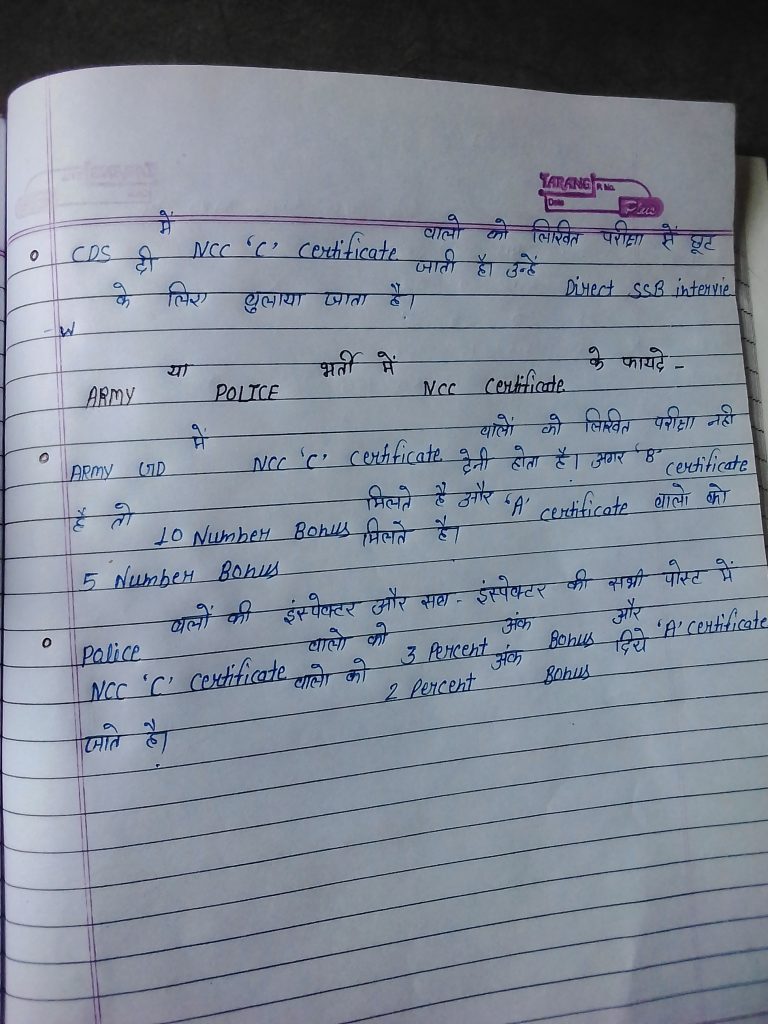 TARANG
P. No.
Date
Plus
CDS में NCC 'C' Certificate वालो को लिखित परीक्षा में छूट
दी जाती है। उन्हें Direct SSB intervie
-w के लिए बुलाया जाता है।
ARMY या POLICE भर्ती में NCC Certificate के फायदे -
ARMY GD में NCC 'C' Certificate वालों को लिखित परीक्षा नही
देनी होता है। अगर 'B' certificate
है तो 10 Number Bonus मिलते है और 'A' certificate वालो को
5 Number Bonus मिलते है।
Police वालों की इंस्पेक्टर और सब - इंस्पेक्टर की सभी पोस्ट में
NCC 'C' Certificate वालो को 3 Percent अंक Bonus और 'A' Certificate
वालो को 2 Percent अंक Bonus दिये
जाते है।